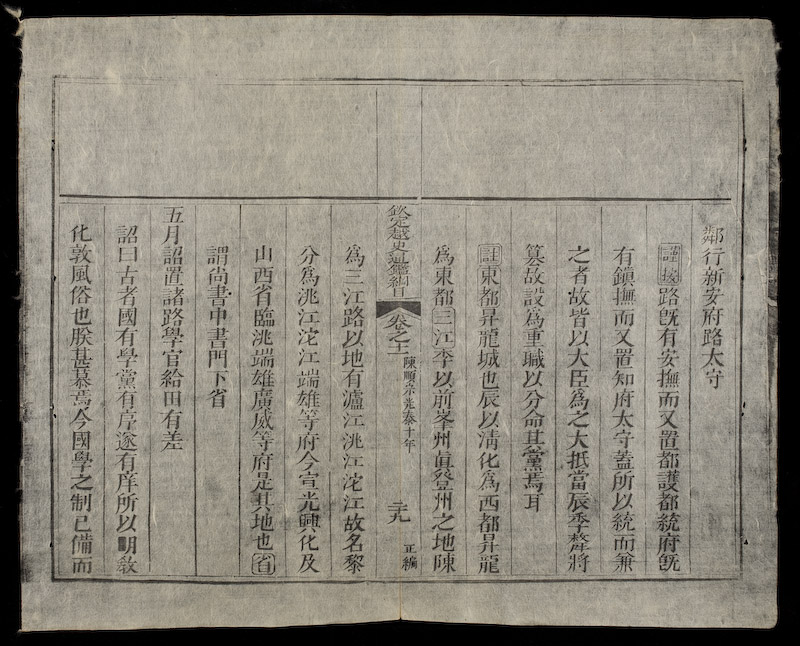 鄰行新安府路太守
謹按路既有安撫而又置都護都統府既
有鎮撫而又置知府太守蓋所以統而兼
之者故皆以大臣爲之大抵當辰季犛將
篡故設爲重職以分命其黨焉耳
註東都昇龍城也辰以清化爲西都昇龍
爲東都三江李以前峯州眞登州之地陳
欽定越史通鑑綱目 卷之十一 陳順宗光泰十年 三九 正編
爲三江路以地有瀘江洮江沱江故名黎
分爲洮江沱江端雄等府今宣光興化及
山西省臨洮端雄廣威等府是其地也省
謂尚書中書門下省
五月詔置諸路學官給田有差
詔曰古者國有學黨有序遂有庠所以明敎
化敦風俗也朕甚慕焉今國學之制已備而